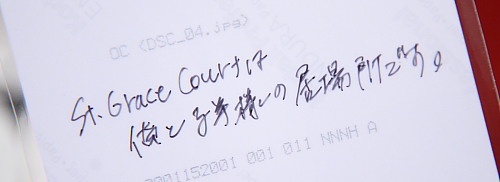 DC <DSC_04.jpg>
St. Grace Courtは
僕と子芽様の居場所です。
0001152001 001 011 NNNH A